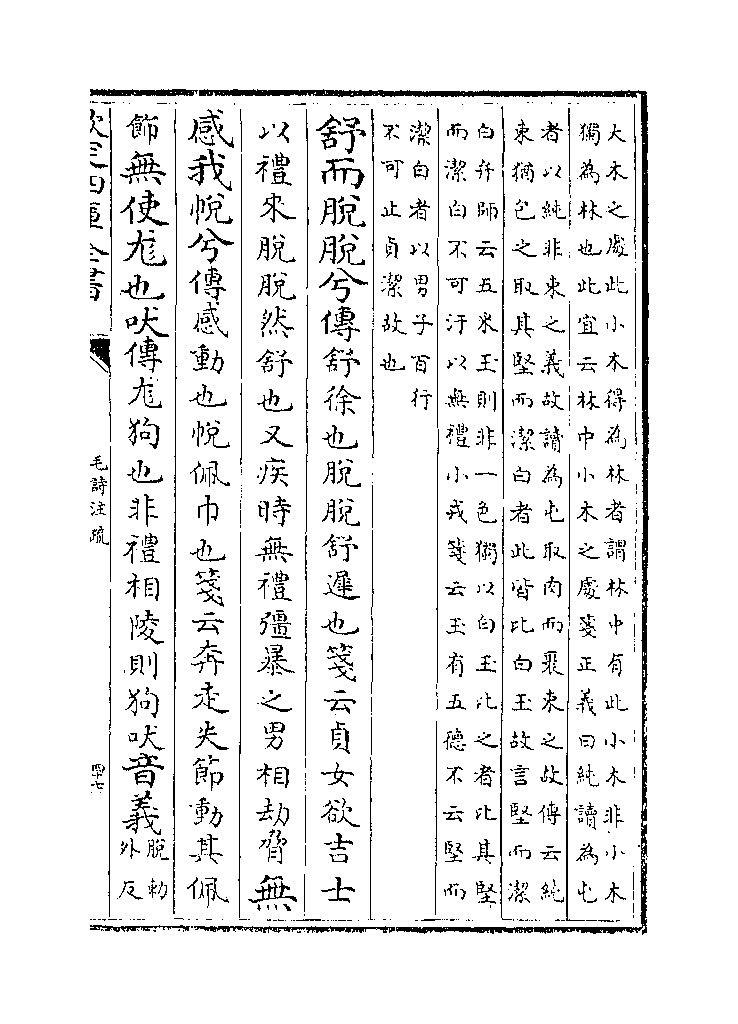 大木之處此小木得為林者謂林中有此小木非小木
獨為林也此宜云林中小木之處箋正義曰純讀為屯
者以純非束之義故讀為屯取肉而裹束之故傳云純
束猶包之取其堅而潔白者此皆比白玉故言堅而潔
白弁師云五采玉則非一色獨以白玉比之者比其堅
而潔白不可汙以無禮小戎箋云玉有五德不云堅而
潔白者以男子百行
不可止貞潔故也
舒而脫脫兮傳舒徐也脫脫舒遲也箋云貞女欲吉士
以禮來脫脫然舒也又疾時無禮彊暴之男相劫脅無
感我帨兮傳感動也帨佩巾也箋云奔走失節動其佩
節無使尨也吠傳尨狗也非禮相陵則狗吠音義脫勅
外反
欽定四庫全書
毛詩注疏
四十七